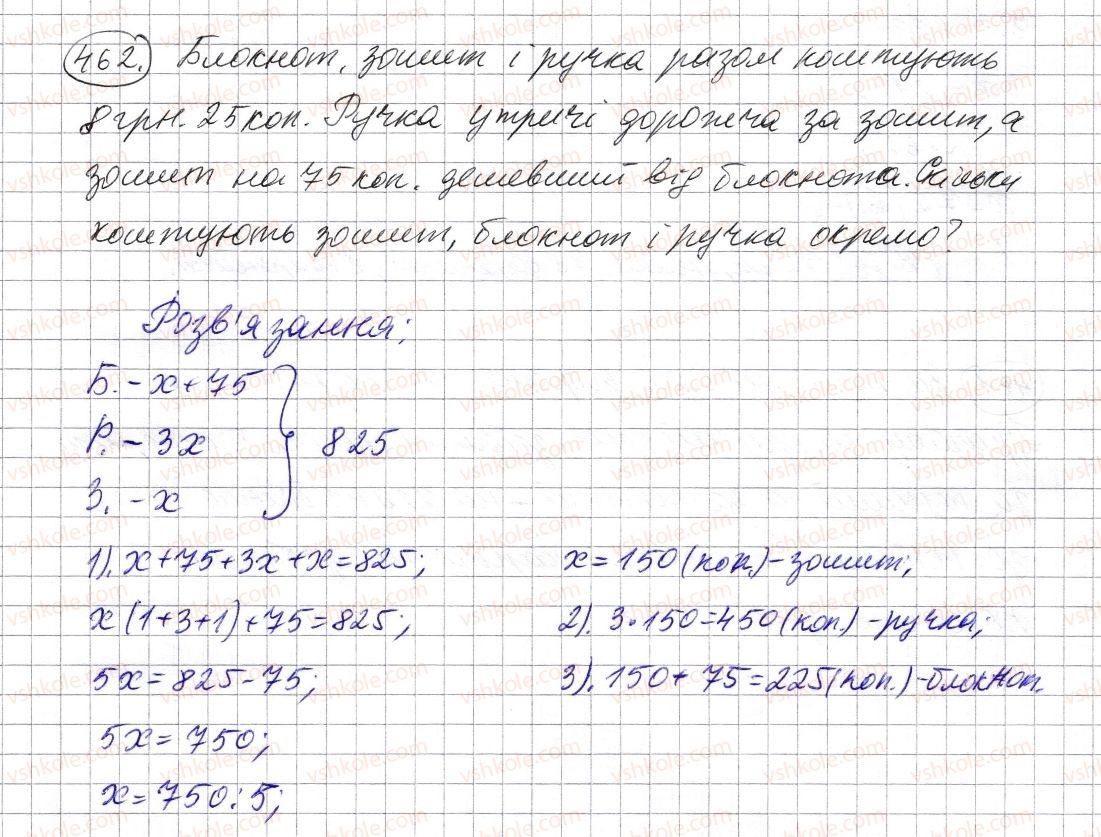 462. Блокнот, зошит і ручка разом коштують
8 грн. 25 коп. Ручка утричі дорожча за зошит, а
зошит на 75 коп. дешевший від блокнота. Скільки
коштують зошит, блокнот і ручка окремо?
Розв'язання:
Б. - х + 75
Р. - 3х
З. - х
825
1). х + 75 + 3х + х = 825;
х (1 + 3 + 1) + 75 = 825;
5х = 825 - 75;
5х = 750;
х = 750 : 5;
х = 150 (коп.) - зошит;
2). 3 · 150 = 450 (коп.) - ручка;
3). 150 + 75 = 225 (коп.) - блокнот.
vshkole.com